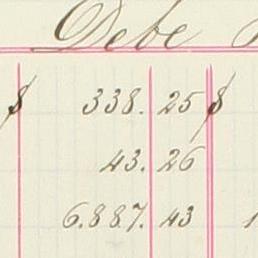 Debe
$ 338. 25 $
43. 26
6.887. 43